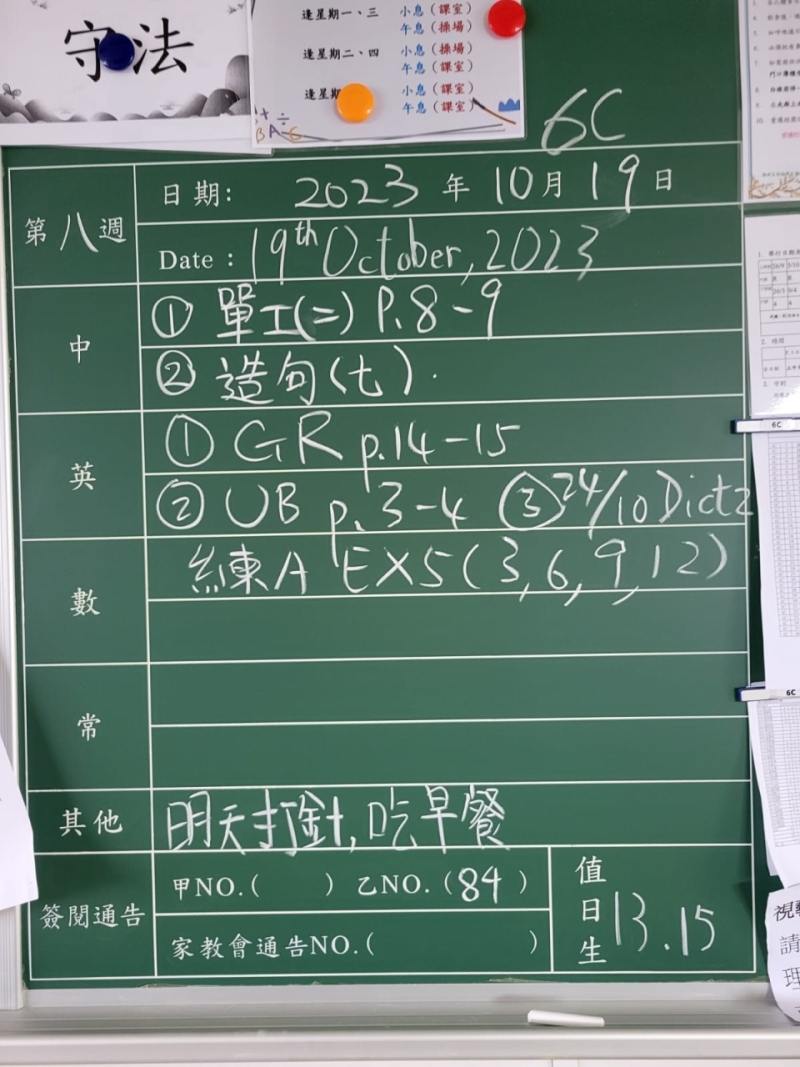 守法
逢星期一、三 小息（課室）
午息（操場）
逢星期二、四 小息（操場）
午息（課室）
逢星期 小息（課室）
午息（課室）
6C
第八週
日期: 2023 年 10 月 19 日
Date : 19th October, 2023
中
① 單工(二) P.8-9
② 造句(七).
英
① GR p.14-15
② UB p.3-4 ③ 24/10 Dict2
數
練A EX5(3,6,9,12)
常
其他
明天打針,吃早餐
簽閱通告
甲NO.( ) 乙NO.(84)
家教會通告NO.( )
值日生 13.15
6C
6C